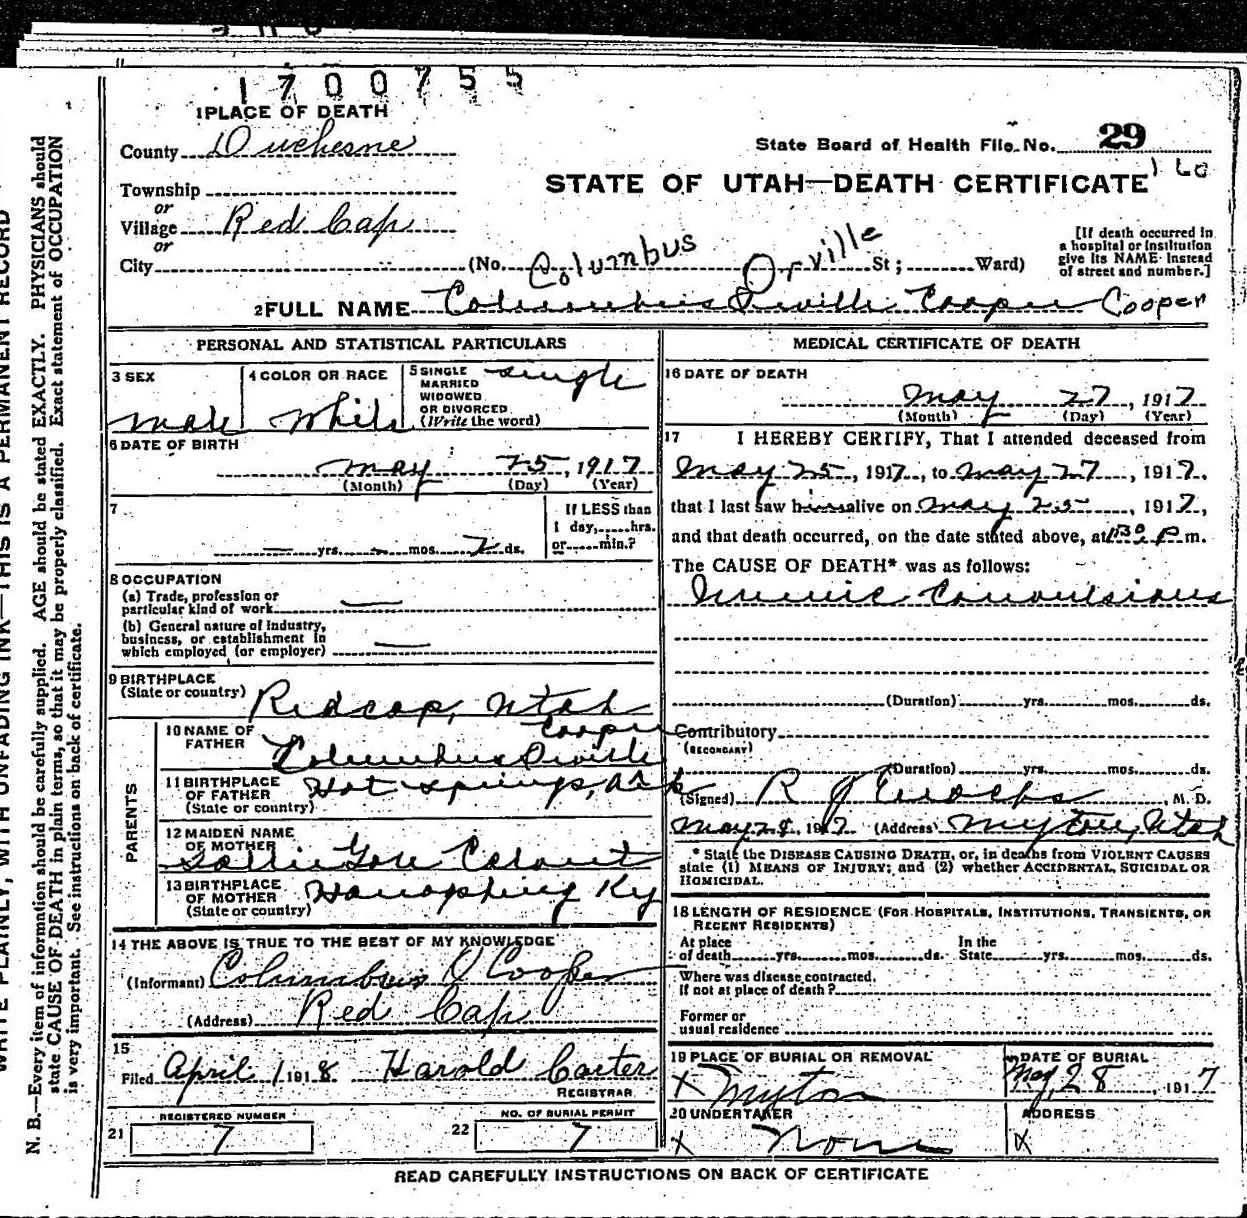 1700755
1 PLACE OF DEATH
County Duchesne
State Board of Health File No. 29
160
Township
STATE OF UTAH—DEATH CERTIFICATE
or
Village Red Cap
or
City (No. Columbus Orville St; Ward)
[If death occurred in
a hospital or institution
give its NAME instead
of street and number.]
2 FULL NAME Columbus Orville Cooper Cooper
PERSONAL AND STATISTICAL PARTICULARS
3 SEX
male
4 COLOR OR RACE
White
5 SINGLE
MARRIED
WIDOWED
OR DIVORCED
(Write the word)
single
6 DATE OF BIRTH
May 25, 1917
(Month) (Day) (Year)
7
yrs. mos. 2 ds.
If LESS than
1 day, hrs.
or min.?
8 OCCUPATION
(a) Trade, profession or
particular kind of work
(b) General nature of industry,
business, or establishment in
which employed (or employer)
9 BIRTHPLACE
(State or country) Redcap, Utah
PARENTS
10 NAME OF
FATHER Columbus Orville Cooper
11 BIRTHPLACE
OF FATHER
(State or country) Hot Springs, Ark
12 MAIDEN NAME
OF MOTHER
13 BIRTHPLACE
OF MOTHER
(State or country) Ky
14 THE ABOVE IS TRUE TO THE BEST OF MY KNOWLEDGE
(Informant) Columbus O Cooper
(Address) Red Cap
15
Filed April 1 1918 Harold Carter
REGISTRAR
REGISTERED NUMBER
21 7
NO. OF BURIAL PERMIT
22 7
MEDICAL CERTIFICATE OF DEATH
16 DATE OF DEATH
May 27, 1917
(Month) (Day) (Year)
17 I HEREBY CERTIFY, That I attended deceased from
May 25, 1917, to May 27, 1917,
that I last saw him alive on May 25, 1917,
and that death occurred, on the date stated above, at 1:30 P m.
The CAUSE OF DEATH* was as follows:
Convulsions
(Duration) yrs. mos. ds.
Contributory
(SECONDARY)
(Duration) yrs. mos. ds.
(Signed) R J Enochs, M. D.
May 28, 1917 (Address) Myton, Utah
* State the DISEASE CAUSING DEATH, or, in deaths from VIOLENT CAUSES
state (1) MEANS OF INJURY; and (2) whether ACCIDENTAL, SUICIDAL OR
HOMICIDAL.
18 LENGTH OF RESIDENCE (FOR HOSPITALS, INSTITUTIONS, TRANSIENTS, OR
RECENT RESIDENTS)
At place
of death yrs. mos. ds.
In the
State yrs. mos. ds.
Where was disease contracted,
If not at place of death?
Former or
usual residence
19 PLACE OF BURIAL OR REMOVAL
X Myton
DATE OF BURIAL
May 28, 1917
20 UNDERTAKER
X None
ADDRESS
X
READ CAREFULLY INSTRUCTIONS ON BACK OF CERTIFICATE
WRITE PLAINLY, WITH UNFADING INK—THIS IS A PERMANENT RECORD
N. B.—Every item of information should be carefully supplied. AGE should be stated EXACTLY. PHYSICIANS should
state CAUSE OF DEATH in plain terms, so that it may be properly classified. Exact statement of OCCUPATION
is very important. See instructions on back of certificate.